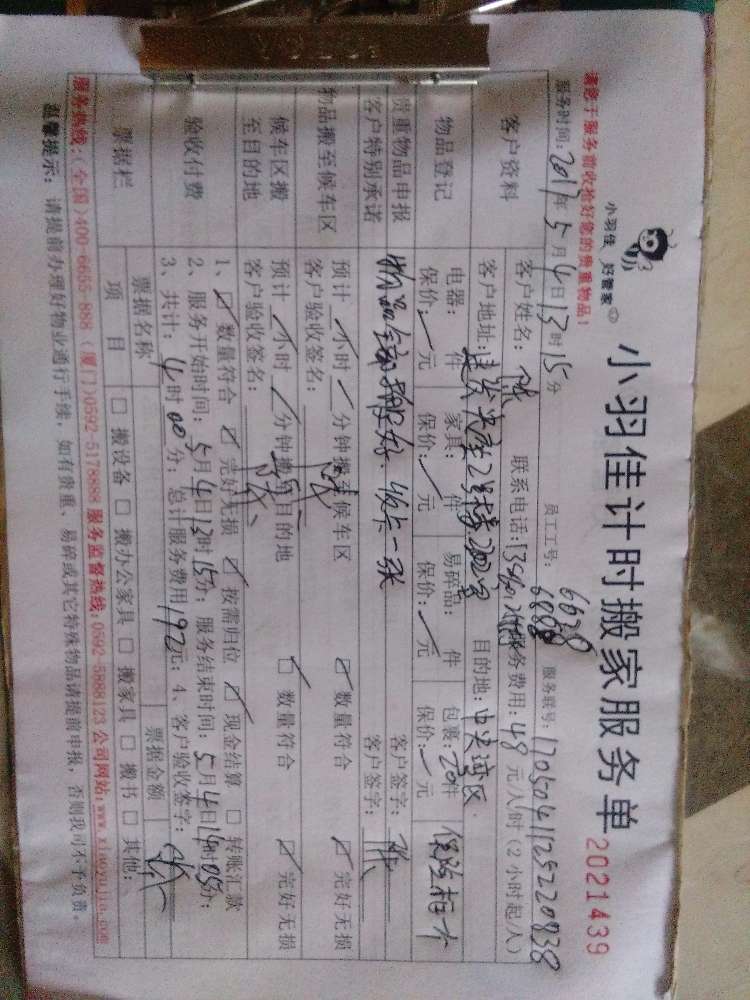 小羽佳计时搬家服务单
2021439
小羽佳 好管家
请您于服务前收拾好您的贵重物品！
员工工号: 6628
服务时间: 2017年5月4日13时15分 服务账号: 17050411252220838
客户资料 客户姓名: 联系电话: 服务费用: 48元/小时(2小时起/人)
客户地址: 目的地: 中央湾区
物品登记 电器: 件 家具: 件 易碎品: 件 包裹: 20件 保险柜一个
保价: 元 保价: 元 保价: 元 保价: 元
贵重物品申报 客户签字:
客户特别承诺 客户签字:
物品搬至候车区 预计 小时 分钟搬至候车区 ☑ 数量符合 ☑ 完好无损
客户验收签名:
候车区搬至目的地 预计 小时 分钟搬至目的地 ☑ 数量符合 ☑ 完好无损
客户验收签名:
验收付费 1、☑ 数量符合 ☑ 完好无损 ☑ 按需归位 ☑ 现金结算 ☐ 转账汇款
2、服务开始时间: 5月4日13时15分; 服务结束时间: 5月4日
3、共计: 4时00分; 总计服务费用192元; 4、客户验收签字:
票据栏 票据名称 票据金额
项 目 ☐ 搬设备 ☐ 搬办公家具 ☐ 搬家具 ☐ 搬书 ☐ 其他:
服务热线:(全国)400-6655-888 (厦门)0592-5178888 服务监督热线:0592-5888123 公司网站:www.xiaoyujia.com
温馨提示: 请提前办理好物业通行手续, 如有贵重、易碎或其它特殊物品请提前申报, 否则我司不予负责。